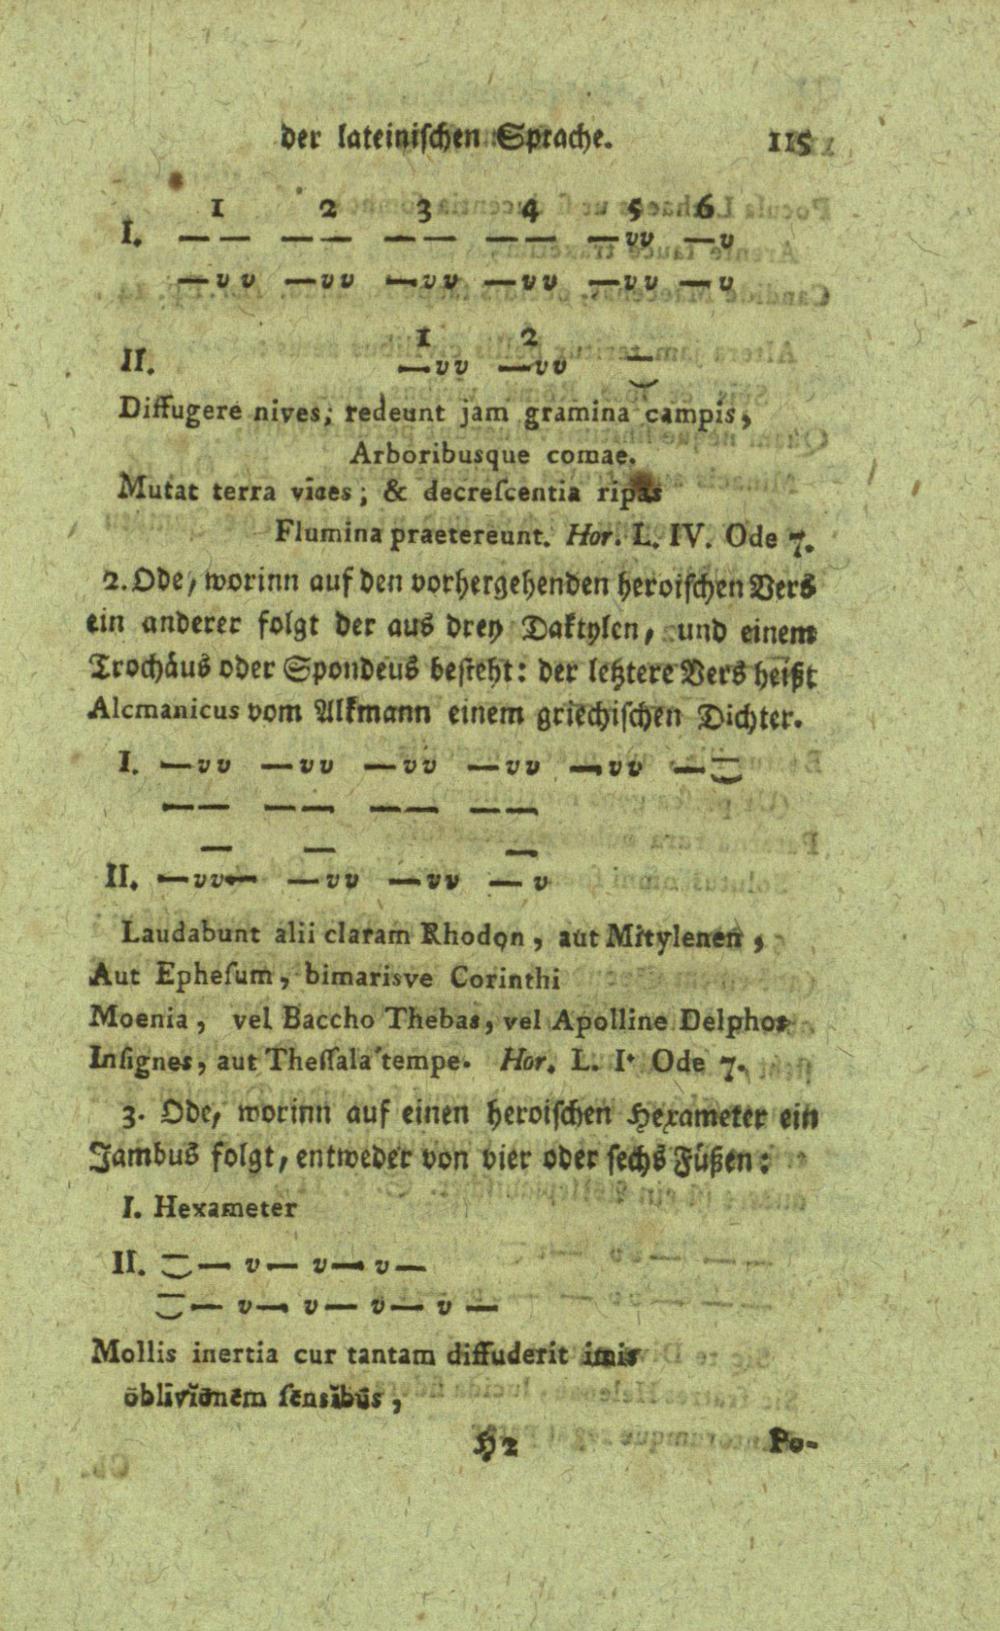 der lateinischen Sprache. 115
1 2 3 4 5 6
I. — — — — — — — — — vv — v
— v v — vv — vv — vv — vv — v
1 2
II. — vv — vv —̮
Diffugere nives; redeunt jam gramina campis,
Arboribusque comae.
Mutat terra vices; & decreſcentia ripas
Flumina praetereunt. Hor. L. IV. Ode 7.
2. Ode, worinn auf den vorhergehenden heroiſchen Vers
ein anderer folgt der aus drey Daktylen, und einem
Trochäus oder Spondeus beſteht: der letztere Vers heißt
Alcmanicus vom Alkmann einem griechiſchen Dichter.
I. — vv — vv — vv — vv — vv — —̮
— — — — — — — —
— — —
II. — vv — — vv — vv — v
Laudabunt alii claram Rhodon, aut Mitylenen,
Aut Epheſum, bimarisve Corinthi
Moenia, vel Baccho Thebas, vel Apolline Delphos
Inſignes, aut Theſſala tempe. Hor. L. I. Ode 7.
3. Ode, worinn auf einen heroiſchen Hexameter ein
Jambus folgt, entweder von vier oder ſechs Füßen:
I. Hexameter
II. —̮ — v — v — v —
—̮ — v — v — v — v —
Mollis inertia cur tantam diffuderit imis
ōblīvĭōnēm ſēnsĭbūs,
H 2 Po-